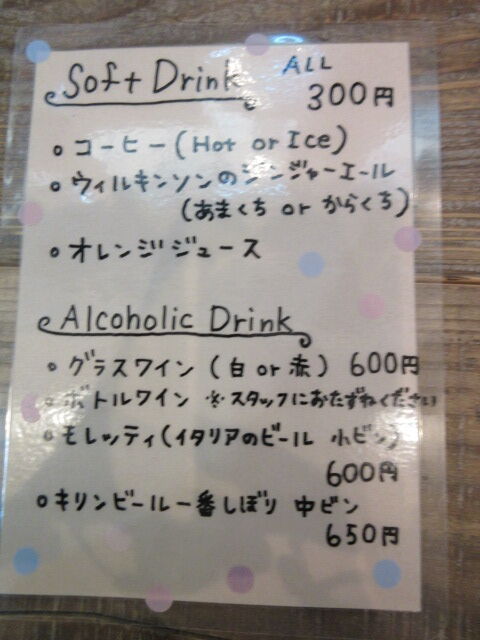 Soft Drink ALL
300円
○ コーヒー(Hot or Ice)
○ ウィルキンソンのジンジャーエール
(あまくち or からくち)
○ オレンジジュース
Alcoholic Drink
○ グラスワイン (白 or 赤) 600円
○ ボトルワイン ※スタッフにおたずねください
○ モレッティ(イタリアのビール 小ビン)
600円
○ キリンビール一番しぼり 中ビン
650円